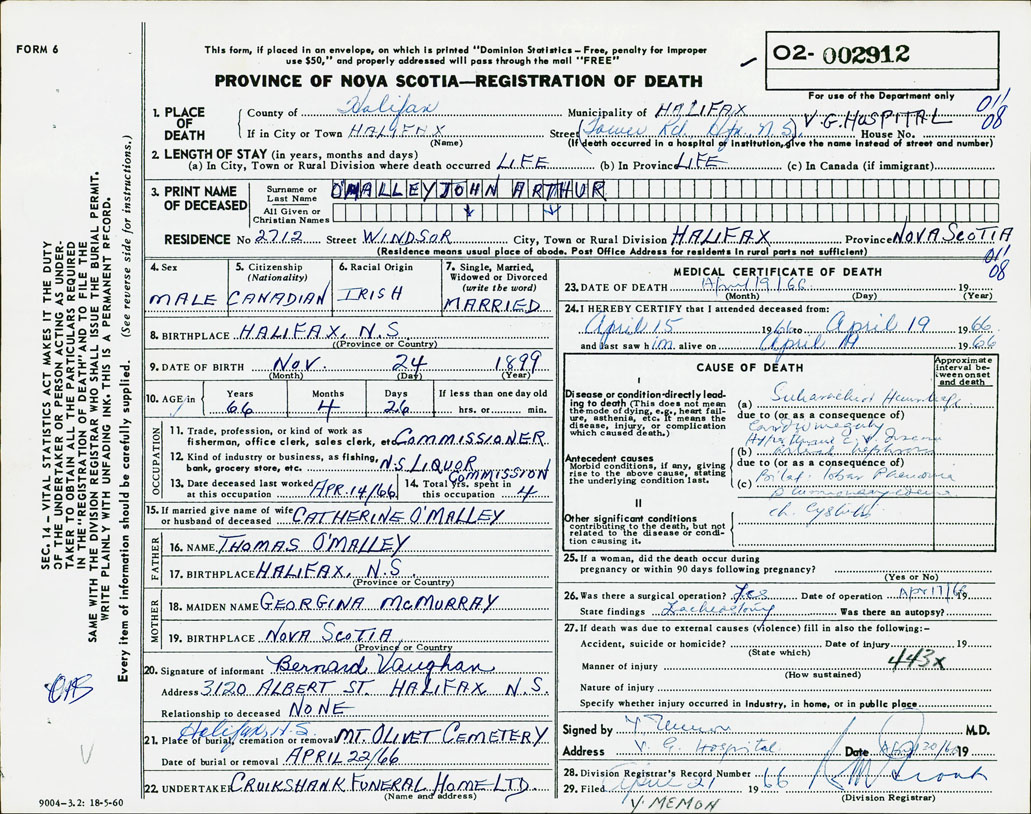 FORM 6
This form, if placed in an envelope, on which is printed "Dominion Statistics – Free, penalty for improper
use $50," and properly addressed will pass through the mail "FREE"
O2- 002912
PROVINCE OF NOVA SCOTIA—REGISTRATION OF DEATH
For use of the Department only
011
08
1. PLACE OF DEATH
County of Halifax Municipality of HALIFAX
If in City or Town HALIFAX Street Tower Rd. Hfx. N.S. V.G. HOSPITAL House No.
(Name) (If death occurred in a hospital or institution, give the name instead of street and number)
2. LENGTH OF STAY (in years, months and days)
(a) In City, Town or Rural Division where death occurred LIFE (b) In Province LIFE (c) In Canada (if immigrant)
3. PRINT NAME OF DECEASED
Surname or Last Name O'MALLEY JOHN ARTHUR
All Given or Christian Names
RESIDENCE No 2712 Street WINDSOR City, Town or Rural Division HALIFAX Province NOVA SCOTIA
(Residence means usual place of abode. Post Office Address for residents in rural parts not sufficient)
011
08
4. Sex MALE
5. Citizenship (Nationality) CANADIAN
6. Racial Origin IRISH
7. Single, Married, Widowed or Divorced (write the word) MARRIED
8. BIRTHPLACE HALIFAX, N.S.
(Province or Country)
9. DATE OF BIRTH NOV. 24 1899
(Month) (Day) (Year)
10. AGE in Years 66 Months 4 Days 26 If less than one day old hrs. or min.
OCCUPATION
11. Trade, profession, or kind of work as
fisherman, office clerk, sales clerk, etc. COMMISSIONER
12. Kind of industry or business, as fishing,
bank, grocery store, etc. N.S. LIQUOR COMMISSION
13. Date deceased last worked at this occupation APR. 14/66
14. Total yrs. spent in this occupation 4
15. If married give name of wife or husband of deceased CATHERINE O'MALLEY
FATHER
16. NAME THOMAS O'MALLEY
17. BIRTHPLACE HALIFAX, N.S.
(Province or Country)
MOTHER
18. MAIDEN NAME GEORGINA McMURRAY
19. BIRTHPLACE NOVA SCOTIA
(Province or Country)
20. Signature of informant Bernard Vaughan
Address 3120 ALBERT ST. HALIFAX N.S.
Relationship to deceased NONE
Halifax, N.S.
21. Place of burial, cremation or removal MT. OLIVET CEMETERY
Date of burial or removal APRIL 22/66
22. UNDERTAKER CRUIKSHANK FUNERAL HOME LTD.
(Name and address)
MEDICAL CERTIFICATE OF DEATH
23. DATE OF DEATH April 19/66 19
(Month) (Day) (Year)
24. I HEREBY CERTIFY that I attended deceased from:
April 15 1966 to April 19 1966
and last saw him alive on April 19 1966
CAUSE OF DEATH
Approximate interval between onset and death
I
Disease or condition directly leading to death (This does not mean the mode of dying, e.g., heart failure, asthenia, etc. It means the disease, injury, or complication which caused death.)
(a)
due to (or as a consequence of)
Antecedent causes
Morbid conditions, if any, giving rise to the above cause, stating the underlying condition last.
(b)
due to (or as a consequence of)
(c)
II
Other significant conditions contributing to the death, but not related to the disease or condition causing it.
25. If a woman, did the death occur during
pregnancy or within 90 days following pregnancy?
(Yes or No)
26. Was there a surgical operation? Yes Date of operation Apr 17/66 19
State findings Was there an autopsy?
27. If death was due to external causes (violence) fill in also the following:–
Accident, suicide or homicide? Date of injury 19
(State which)
443x
Manner of injury
(How sustained)
Nature of injury
Specify whether injury occurred in Industry, in home, or in public place
Signed by M.D.
Address V. G. Hospital Date Apr 20/66 19
28. Division Registrar's Record Number
29. Filed April 21 1966
(Division Registrar)
Y. MEMON
SEC. 14 – VITAL STATISTICS ACT MAKES IT THE DUTY
OF THE UNDERTAKER OR PERSON ACTING AS UNDER-
TAKER TO OBTAIN ALL THE PARTICULARS REQUIRED
IN THE "REGISTRATION OF DEATH" AND TO FILE THE
SAME WITH THE DIVISION REGISTRAR WHO SHALL ISSUE THE BURIAL PERMIT.
WRITE PLAINLY WITH UNFADING INK. THIS IS A PERMANENT RECORD.
Every item of information should be carefully supplied. (See reverse side for instructions.)
9004-3.2: 18-5-60